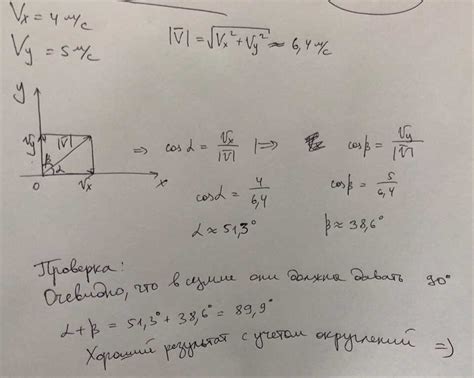 Vx = 4 м/с
|V̅| = √(Vx² + Vy²) ≈ 6,4 м/с
Vy = 5 м/с
y
Vy |V̅|
β
α
0 Vx x
⇒ cos α = Vx/|V̅| |⇒ cos β = Vy/|V̅|
cos α = 4/6,4 cos β = 5/6,4
α ≈ 51,3° β ≈ 38,6°
Проверка:
Очевидно, что в сумме они должна давать 90°
α + β = 51,3° + 38,6° = 89,9°
Хороший результат с учетом округлений =)